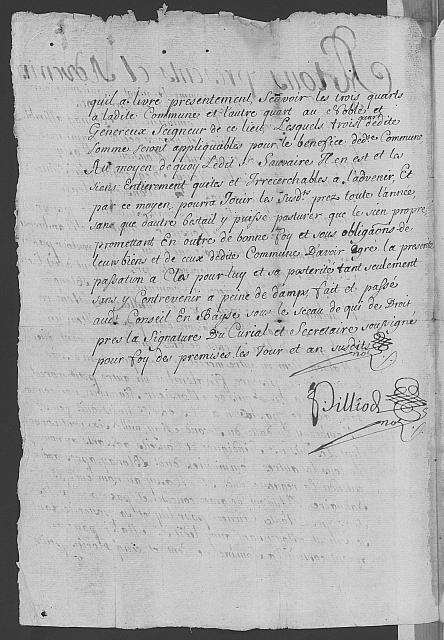 quil a livré presentement, Scavoir les trois quarts
a ladite Commune et lautre quart au Noble et
Genereux Seigneur de ce lieu, Lesquels trois quart dedite
somme seront appliquables pour le benefice dedte Commune
Au moyen de quoy Ledit Sr Sauvaire N en est et les
siens Entierement quites et Irrecerchables a Ladvenir, Et
par ce moyen, pourra Jouir les Susdts prez toute lannee,
sans que dautre bestail y puisse pasturer que le sien propre,
promettant En outre de bonne foy et sous obligaons de
leurs biens et de ceux dedite Commune Davoir agre la presente
passation a Clos pour luy et sa posterité tant seulement
sans y Contrevenir a peine de damps, fait et passé
aud. Conseil En Bayse sous le Seau de qui de Droit
pres la Signature Du Curial et Secretaire soussigné
pour foy des premises les Jour et an susdits
not
Pilliod
not